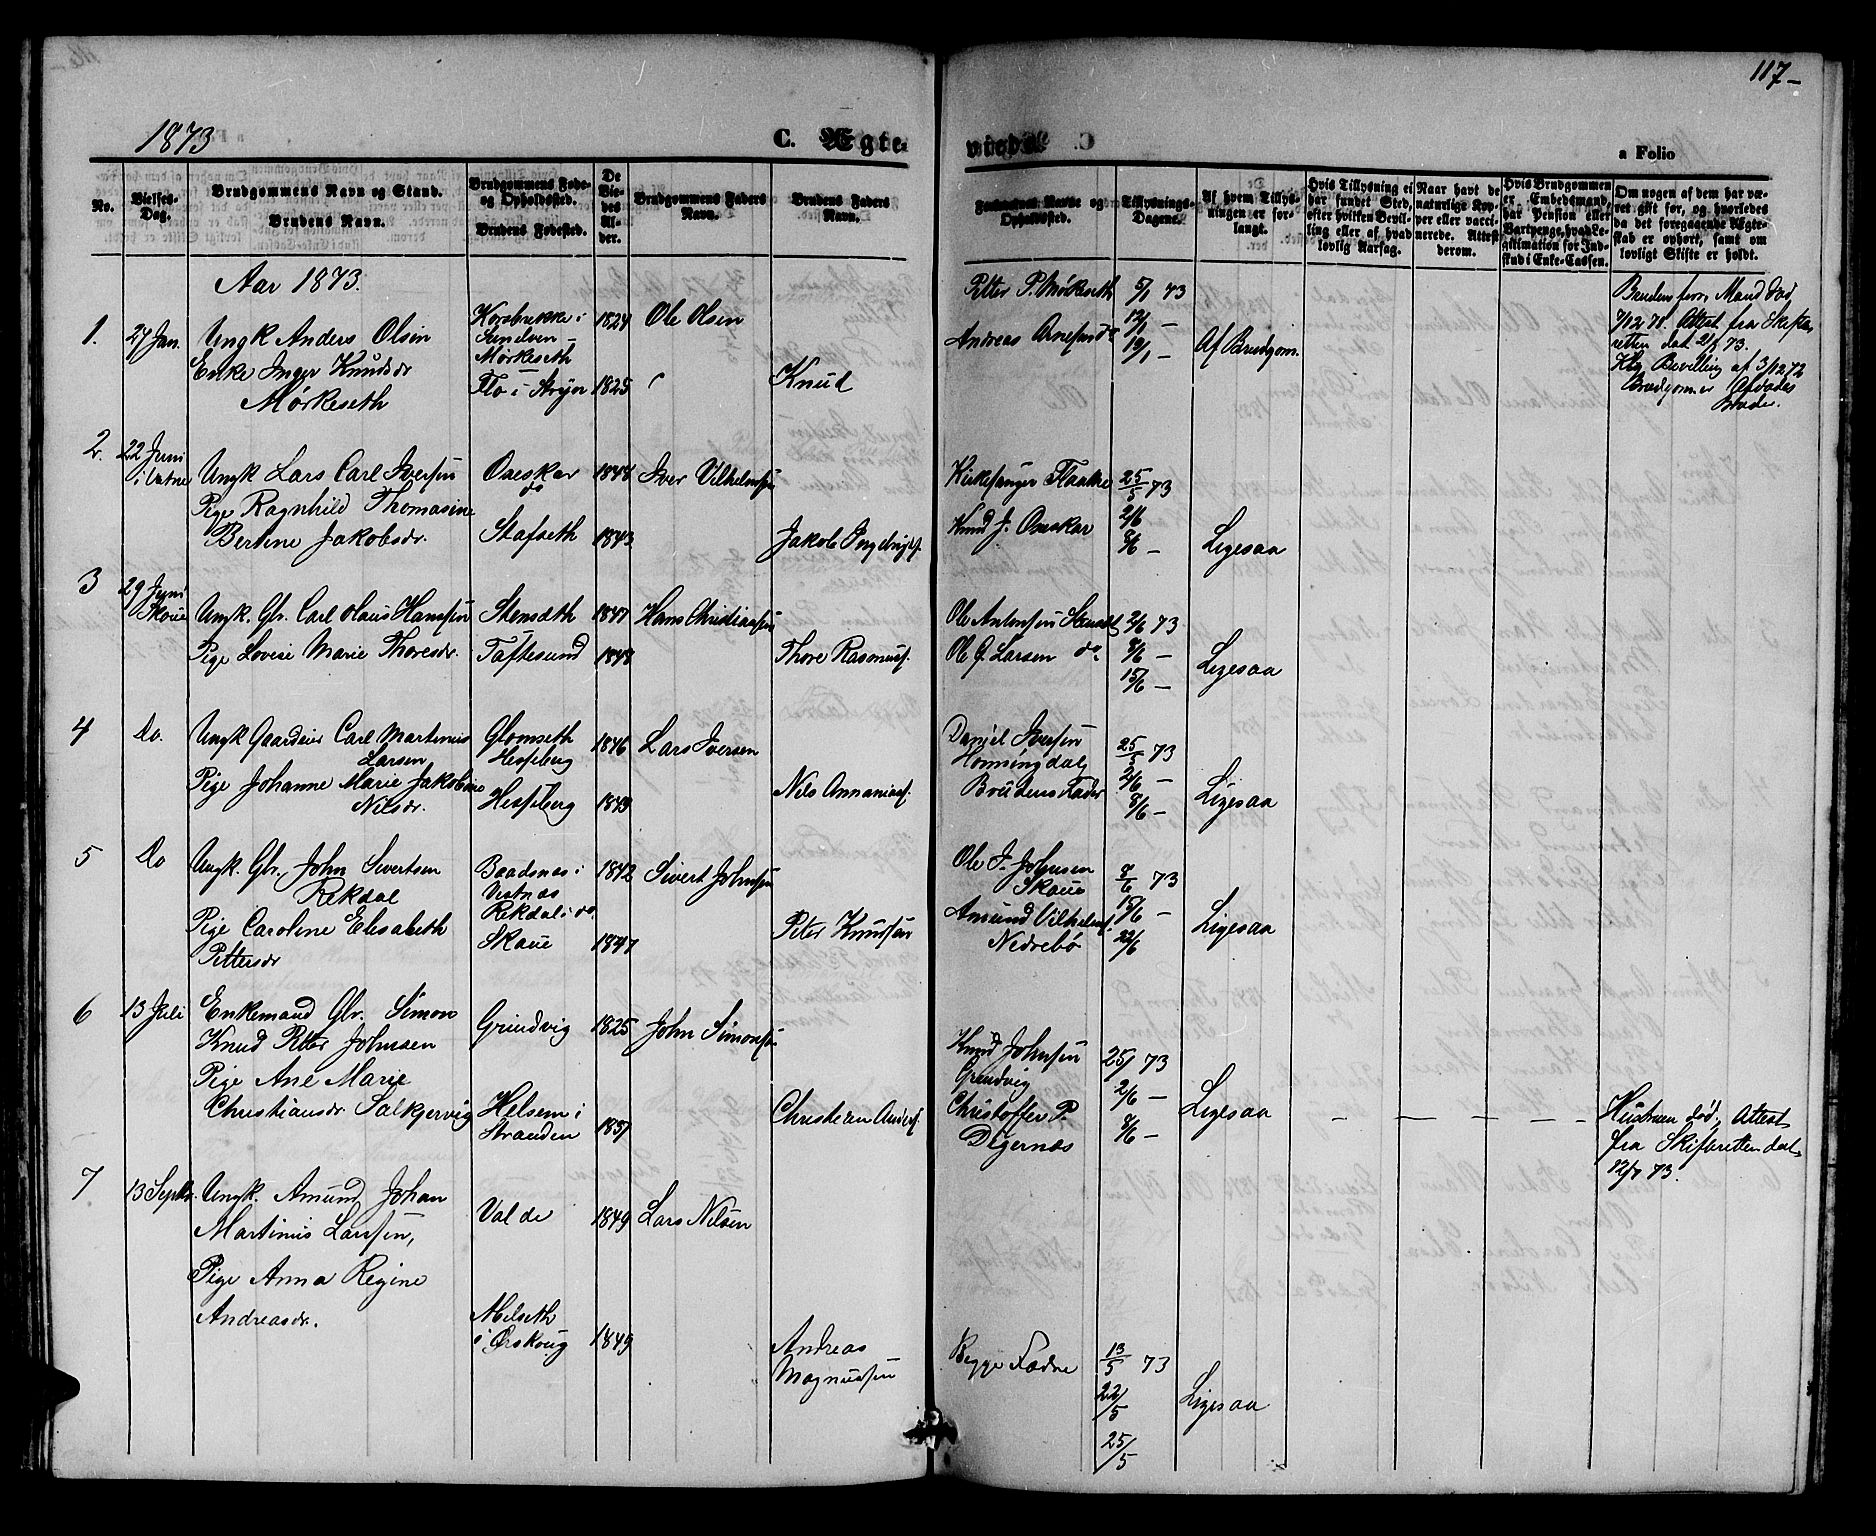 117-
1873
C. Ægte-
viede.
a Folio
No.
Vielses-
Dag.
Brudgommens Navn og Stand.
Brudens Navn.
Brudgommens Føde-
og Opholdssted.
Brudens Fødested.
De
Vie-
des
Al-
der.
Brudgommens Faders
Navn.
Brudens Faders
Navn.
Forlovernes Navne og
Opholdssted.
Tillysnings-
Dagene.
Af hvem Tillys-
ningen er for-
langt.
Hvis Tillysning ei
har fundet Sted,
efter hvilken Bevil-
ling eller af hvad
lovlig Aarsag.
Naar havt de
naturlige Kop-
per eller vacci-
nerede. Attest
derom.
Hvis Brudgommen
er Embedsmand,
har Pension eller
Vartpenge, hvad Le-
gitimation for Ind-
skud i Enke-Cassen.
Om nogen af dem har væ-
ret gift før, og hvorledes
da det foregaaende Ægte-
skab er ophørt, samt om
lovligt Skifte er holdt.
Aar 1873.
1. 27 Jan. Ungk Anders Olsen
Enke Inger Knudsdr
Mørkeseth
Korsbrekke i
Sundven -
Mørkeseth
Flo i Stryn
1824
1825
Ole Olsen
Knud
Petter P. Mørkeseth
Andreas Arnesen do
5/1 73
12/1 -
19/1 -
Af Brudgom.
Bruden forr. Mand død
Attest fra Skifte
retten dat 2/1 73.
Kbg Bevilling af 3/12 72
2. 22 Juni
i Vatne
Ungk Lars Carl Iversen
Pige Ragnhild Thomasine
Bertine Jakobsdr.
Onskar
do
Stafseth
1848
1843
Iver Vilhelmsen
Jakob Ingebrigts.
Kirkesanger Flaathe
Knud J. Onskar
25/5 73
2/6
8/6 -
Ligesaa
3 29 Juni
Skoue
Ungk. Gbr. Carl Olaus Hanssen
Pige Lovise Marie Thoresdr.
Stenseth
Tøftesund
1847
1848
Hans Christiansen
Thore Rasmuss.
Ole Antonsen Stenseth
Ole G. Larsen do.
2/6 73
8/6 -
15/6 -
Ligesaa
4 Do. Ungk Gaardeier Carl Martinus
Larsen
Pige Johanne Marie Jakobine
Nilsdr.
Glomseth
Hesseberg
Hesseberg
1846
1849
Lars Iversen
Nils Annaniass.
Daniel Iversen
Honningdal
Brudens Fader
25/5 73
2/6 -
8/6 -
Ligesaa
5 Do Ungk. Gbr. John Sivertsen
Rekdal
Pige Caroline Elisabeth
Pettersdr
Baadsnes i
Vestnes
Rekdal i do.
Skoue
1842
1847
Sivert Johnsen
Peter Knudsen
Ole J. Johnsen
Skoue
Amund Vilhelms.
Nedrebø
8/6 73
15/6 -
22/6
Ligesaa
6 13 Juli Enkemand Gbr. Simon
Knud Petter Johnsen
Pige Ane Marie
Christiansdr Salkjervig
Grindvig
Helsem i
Stranden
1825
1837
John Simonsen
Christian Anders.
Knud Johnsen
Grindvig
Christoffer P.
Digernæs
25/ 73
2/6 -
8/6 -
Ligesaa
- - - -
Hustruen død, Attest
fra Skifteretten dat.
12/7 73.
7 13 Septbr. Ungk. Amund Johan
Martinus Larssen,
Pige Anna Regine
Andreasdr.
Valde
Melseth
i Ørskoug
1849
1849
Lars Nilsen
Andreas
Magnussen
Begge Fædre
13/5 73
22/5
25/5
Ligesaa